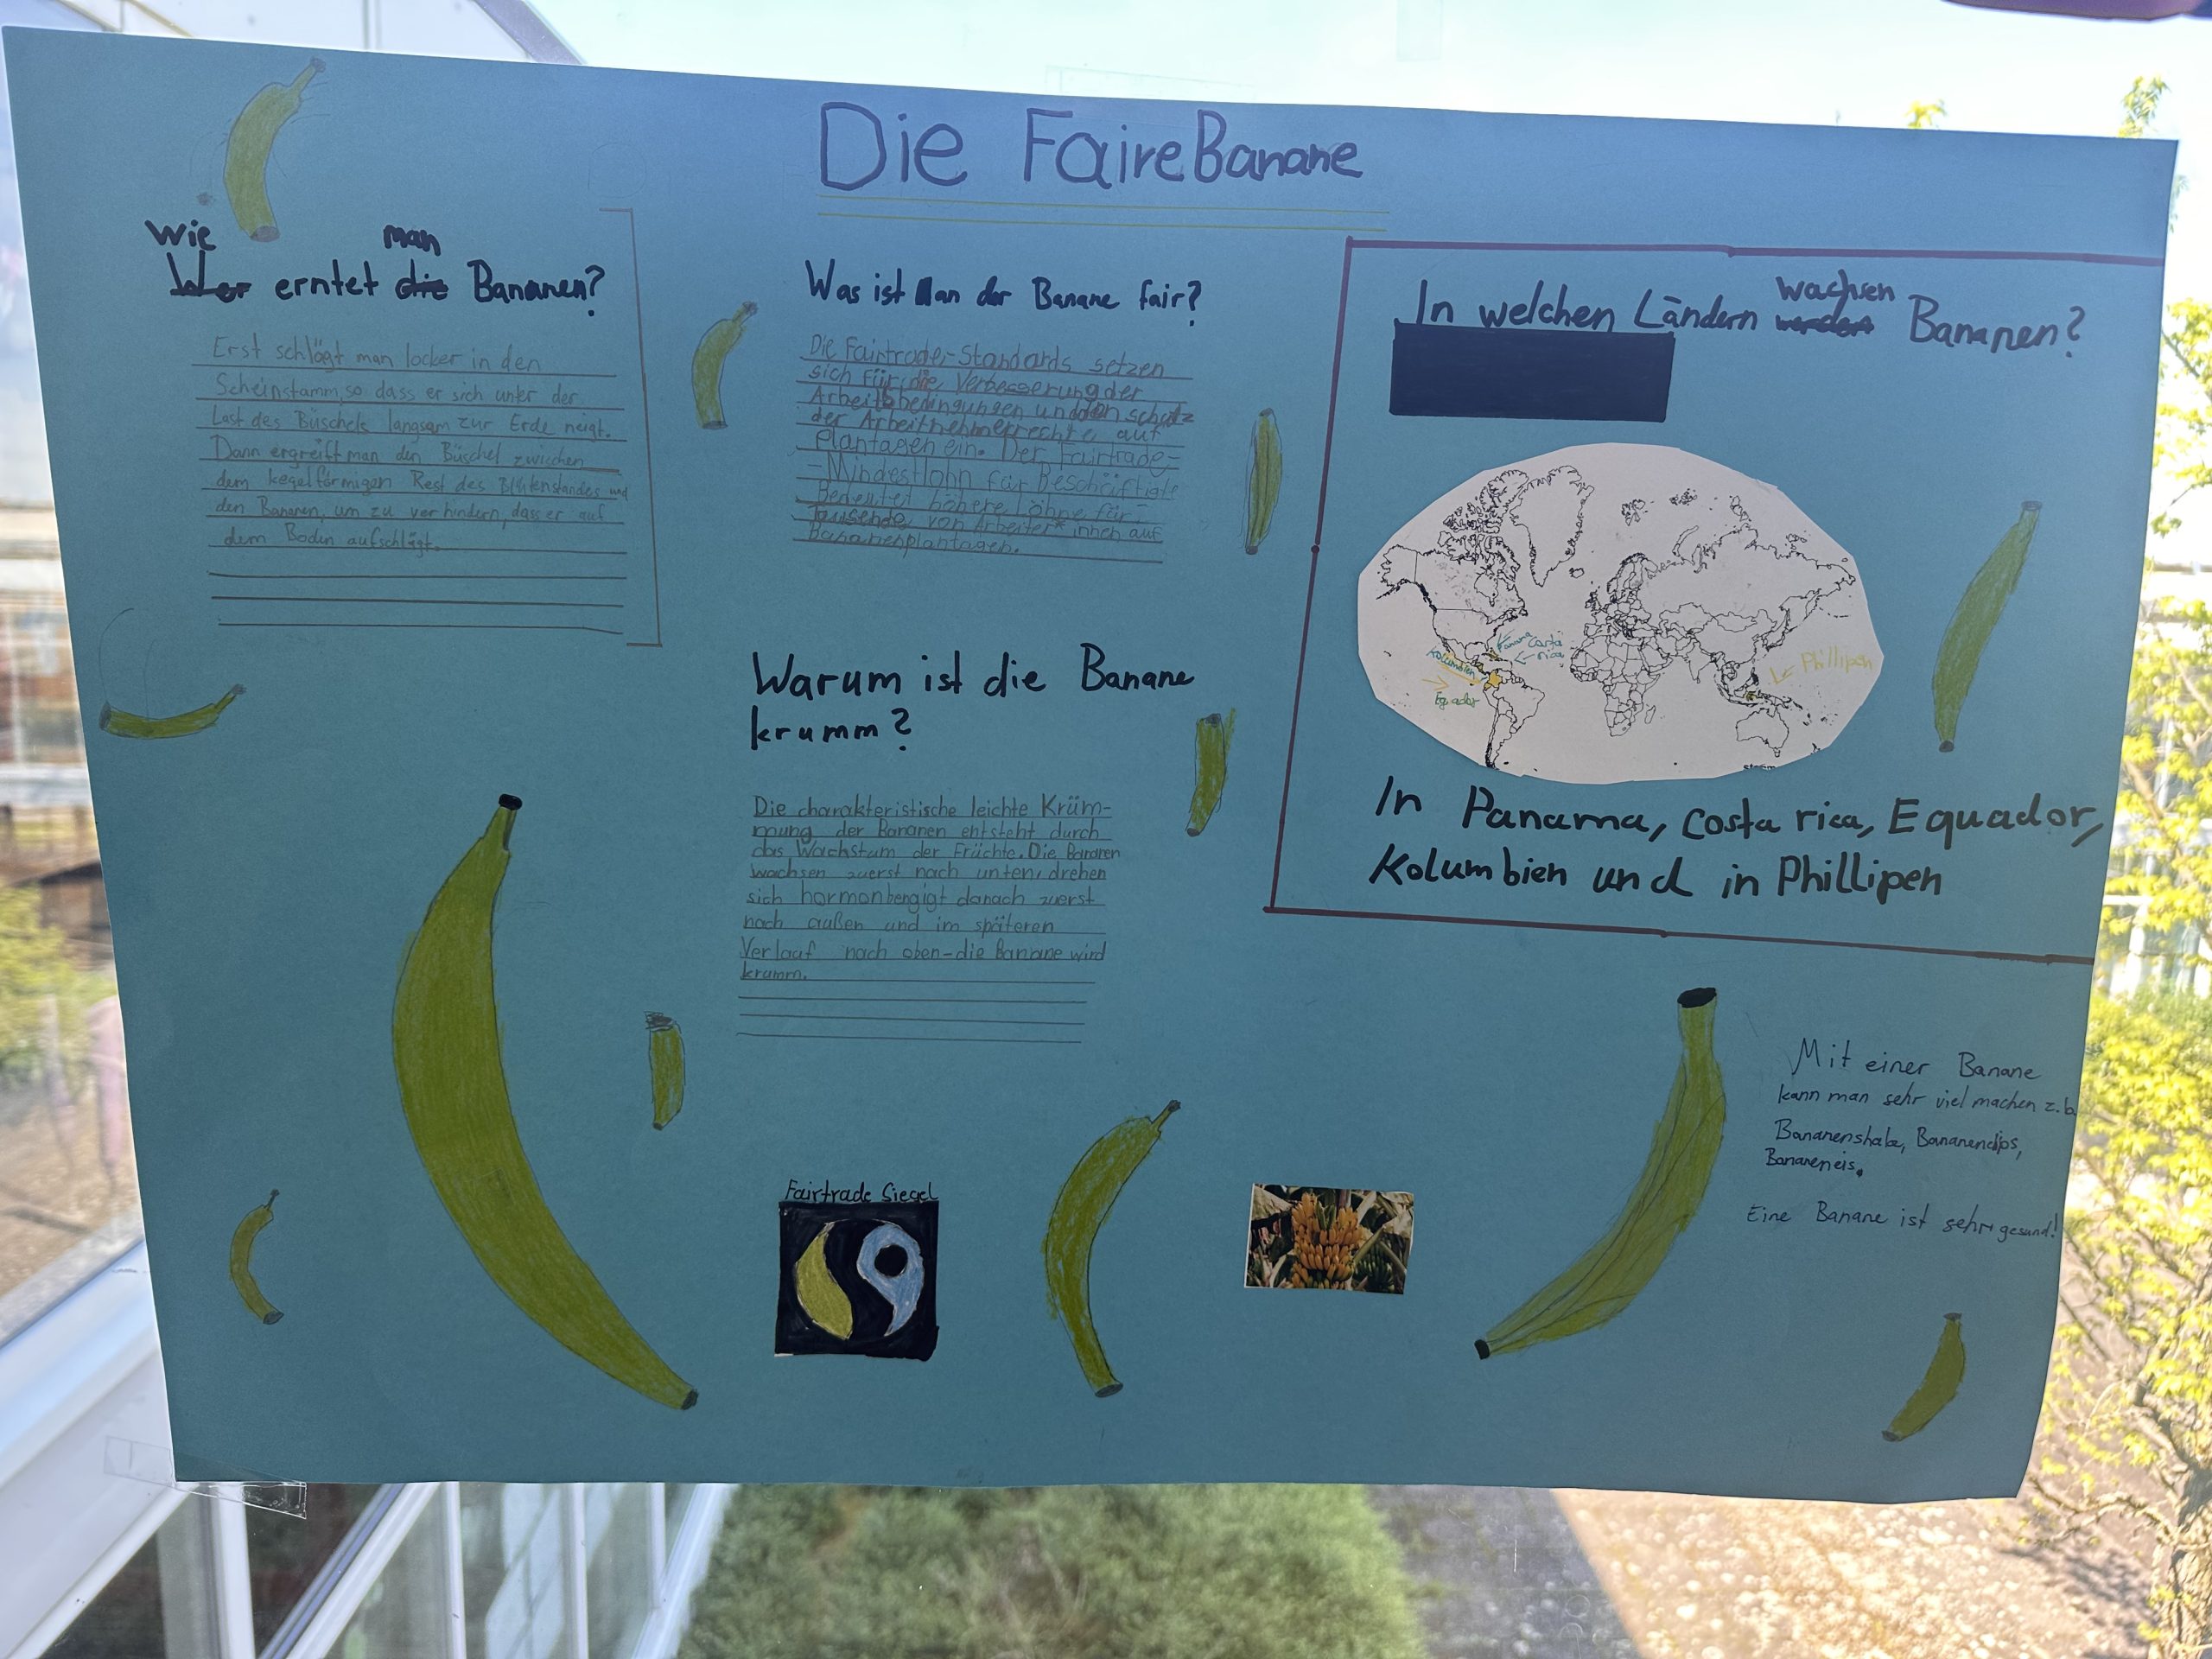 Die Faire Banane
wie man
Wer erntet die Bananen?
Erst schlägt man locker in den
Scheinstamm, so dass er sich unter der
Last des Büschels langsam zur Erde neigt.
Dann ergreift man den Büschel zwischen
dem kegelförmigen Rest des Blütenstandes und
den Bananen, um zu verhindern, dass er auf
dem Boden aufschlägt.
Was ist an der Banane fair?
Die Fairtrade-Standards setzen
sich für die Verbesserung der
Arbeitsbedingungen und den schutz
der Arbeitnehmerrechte auf
Plantagen ein. Der Fairtrade-
-Mindestlohn für Beschäftigte
Bedeutet höhere Löhne für
Tausende von Arbeiter*innen auf
Bananenplantagen.
Warum ist die Banane
krumm?
Die charakteristische leichte Krüm-
mung der Bananen entsteht durch
das Wachstum der Früchte. Die Bananen
wachsen zuerst nach unten, drehen
sich hormonbengigt danach zuerst
nach außen und im späteren
Verlauf nach oben-die Banane wird
krumm.
Fairtrade Siegel
wachsen
In welchen Ländern werden Bananen?
Panama Costa
rica
Kolumbien
Phillipen
Eqador
In Panama, Costa rica, Equador,
Kolumbien und in Phillipen
Mit einer Banane
kann man sehr viel machen z.b
Bananenshake, Bananenchips,
Bananeneis.
Eine Banane ist sehr gesund!